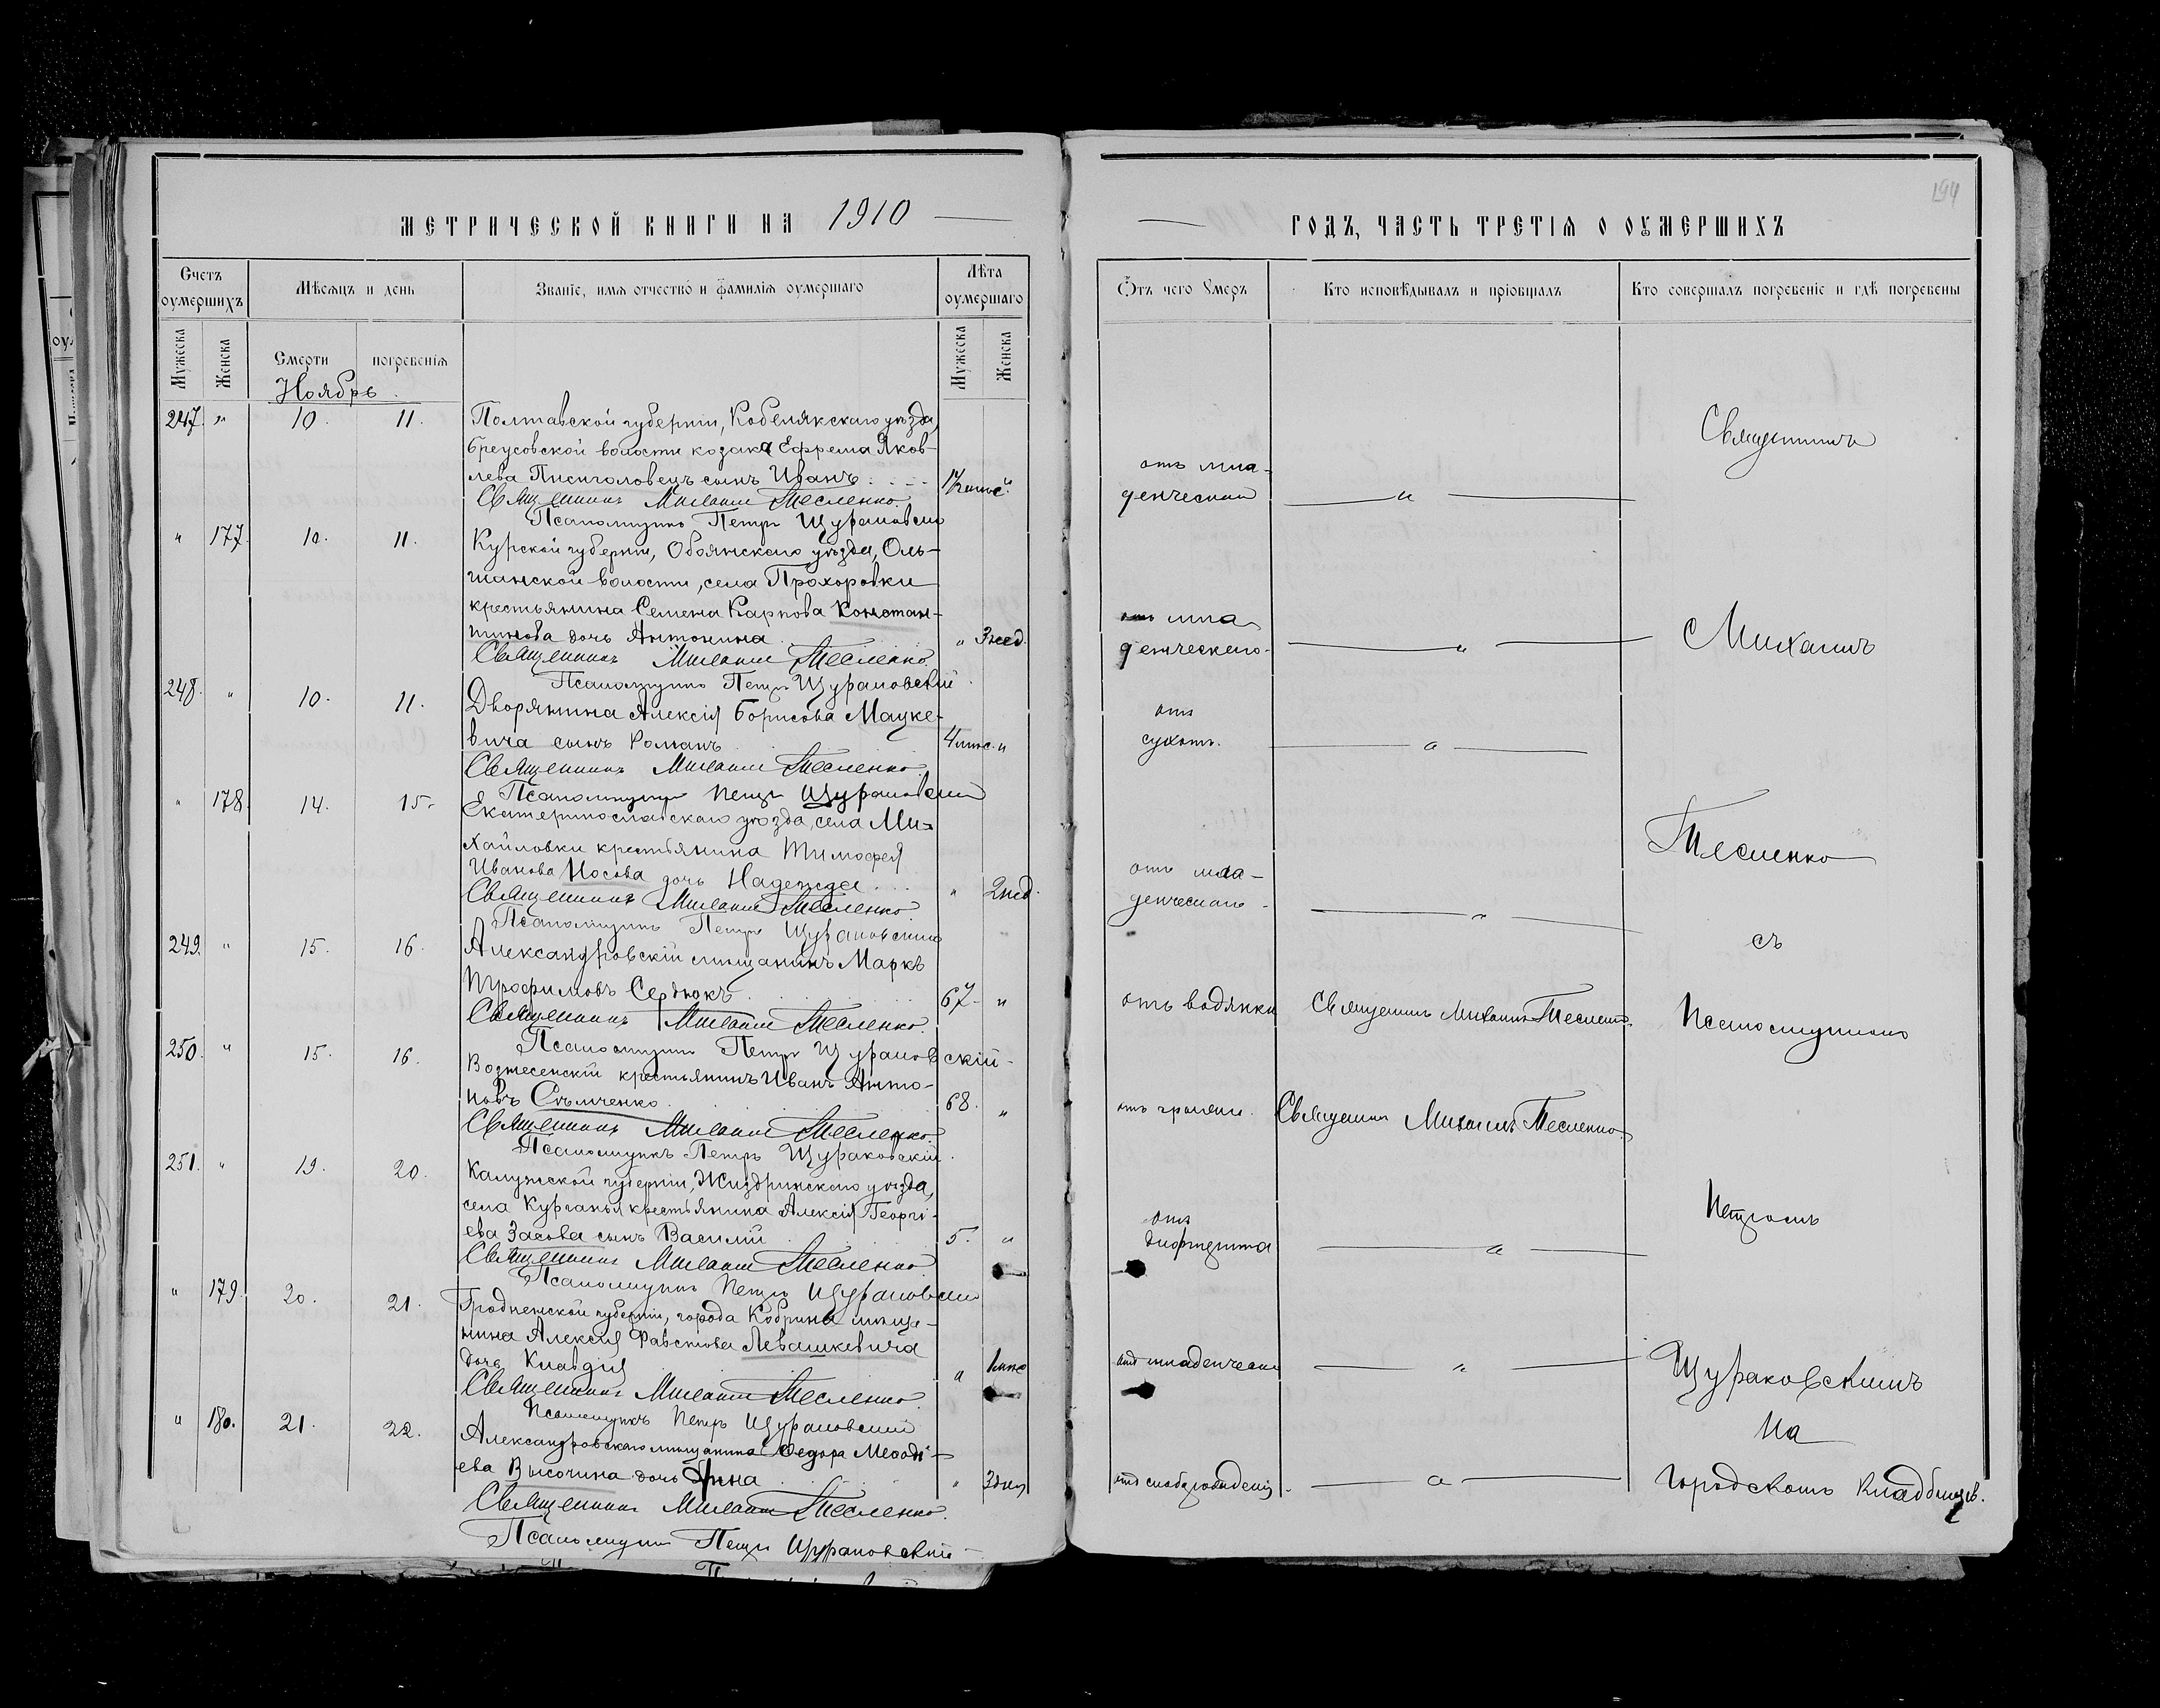 194
МЕТРИЧЕСКОЙ КНИГИ НА 1910
ГОДЪ, ЧАСТЬ ТРЕТІЯ О ОУМЕРШИХЪ
Счетъ оумершихъ
Мѣсяцъ и день
Званіе, имя отчество и фамилія оумершаго
Лѣта оумершаго
Отъ чего умеръ
Кто исповѣдывалъ и пріобщалъ
Кто совершалъ погребеніе и гдѣ погребены
Мужеска
Женска
Смерти
погребенія
Мужеска
Женска
Ноябрь
247. " 10. 11.
Полтавской губерніи, Кобелякскаго уѣзда,
Бреусовской волости козака Ефрема Яков-
лева сынъ Иванъ
Священникъ Михаилъ Тесленко.
Псаломщикъ Петръ Щураковскій
отъ мла-
денческой
"
" 177. 10. 11.
Курской губерніи, Обоянскаго уѣзда, Оль-
шанской волости, села Прохоровки
крестьянина Семена Карпова Констан-
тинова дочь Антонина " 3 нед.
Священникъ Михаилъ Тесленко.
Псаломщикъ Петръ Щураковскій
отъ мла
денческаго
"
248. " 10. 11.
Дворянина Алексія Борисова Мацке-
вича сынъ Романъ 4 мѣс. "
Священникъ Михаилъ Тесленко.
Псаломщикъ Петръ Щураковскій
отъ
сухот.
"
" 178. 14. 15.
Екатеринославскаго уѣзда, села Ми-
хайловки крестьянина Тимофея
Иванова Носова дочь Надежда " 2 нед.
Священникъ Михаилъ Тесленко.
Псаломщикъ Петръ Щураковскій
отъ мла-
денческаго
"
249. " 15. 16.
Александровскій мѣщанинъ Маркъ
Трофимовъ Сердюкъ 67. "
Священникъ Михаилъ Тесленко.
Псаломщикъ Петръ Щураковскій
отъ водянки
Священникъ Михаилъ Тесленко.
250. " 15. 16.
Вознесенскій крестьянинъ Иванъ Анто-
новъ 68. "
Священникъ Михаилъ Тесленко.
Псаломщикъ Петръ Щураковскій.
отъ
Священникъ Михаилъ Тесленко.
251. " 19. 20.
Калужской губерніи, Жиздринскаго уѣзда,
села Курганья крестьянина Алексія Георгі-
ева Засова сынъ Василій 5. "
Священникъ Михаилъ Тесленко.
Псаломщикъ Петръ Щураковскій
отъ
дифтерита
"
" 179. 20. 21.
Гродненской губерніи, города Кобрина мѣща-
нина Алексія Левашкевича
дочь Клавдія " 1 мѣс
Священникъ Михаилъ Тесленко.
Псаломщикъ Петръ Щураковскій
отъ младенческ
"
" 180. 21. 22.
Александровскаго мѣщанина Ѳедора Меѳоді-
ева Высочина дочь Анна " 3 дня
Священникъ Михаилъ Тесленко.
Псаломщикъ Петръ Щураковскій
отъ
"
Священникъ
Михаилъ
Тесленко
съ
Псаломщикомъ
Петромъ
Щураковскимъ
На
городскомъ кладбищѣ.